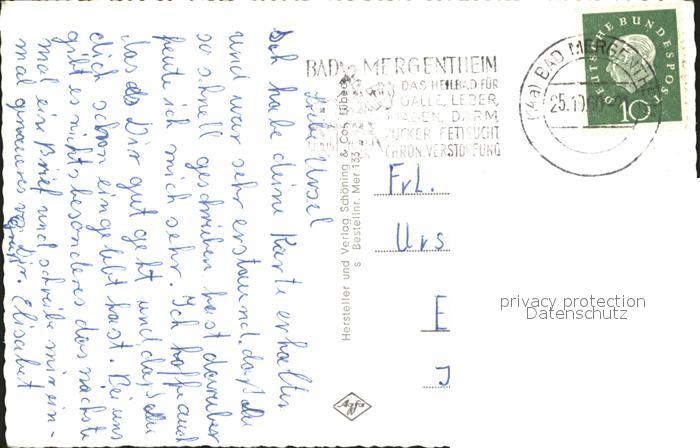 BAD MERGENTHEIM
DAS HEILBAD FÜR
GALLE, LEBER,
MAGEN, DARM,
ZUCKER, FETTSUCHT
CHRON. VERSTOPFUNG
BAD MERGENTHEIM
25.10.60
DEUTSCHE BUNDESPOST
10
Liebe Ursel
Ich habe deine Karte erhalten
und war sehr erstaund, daß du
so schnell geschrieben hast darüber
freute ich mich sehr. Ich hoffe auch
das es Dir gut geht und daß du
dich schon eingelebt hast. Bei uns
gibt es nichts besonderes das nächste
mal ein Brief und schreibe mir ein-
mal genaueres von Dir. Elisabet
Hersteller und Verlag Schöning & Co., Lübeck
s Bestellnr. Mer 133
Agfa
Frl.
Urs
E
privacy protection
Datenschutz